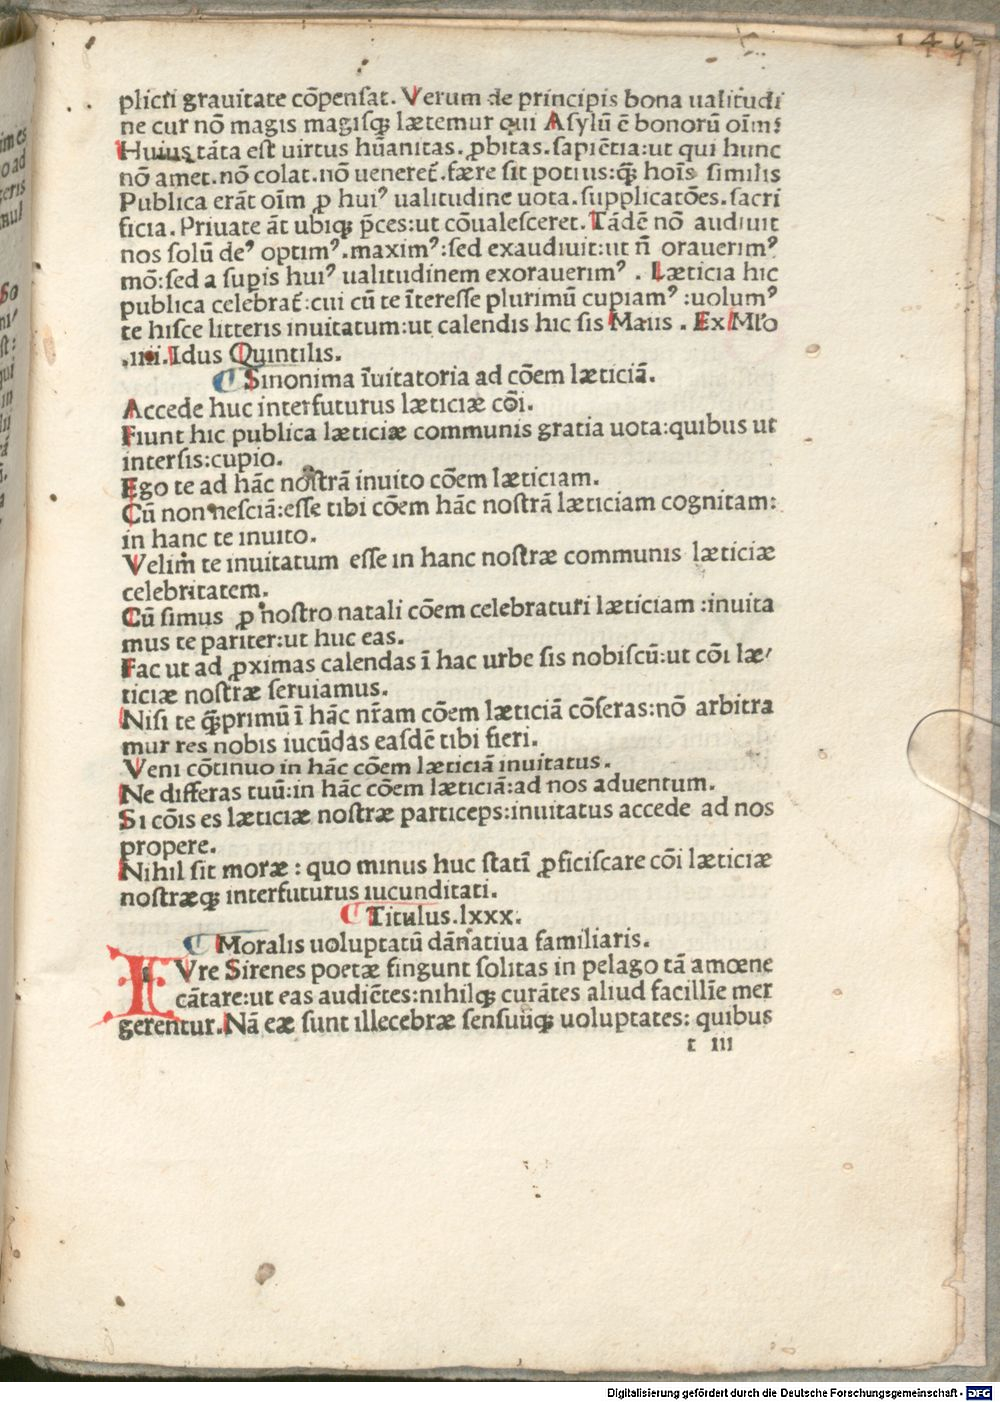 plicti grauitate cōpensat. Verum de principis bona ualitudi
ne cur nō magis magisq; lætemur qui Asylū ē bonorū oīm:
Huius tāta est uirtus hūanitas. ꝓbitas. sapiētia: ut qui hunc
nō amet. nō colat. nō ueneret̄. fære sit potius: q̄; hoīs similis
Publica erāt oīm ꝓ huiꝰ ualitudine uota. supplicatōes. sacri
ficia. Priuate āt ubiq; p̄ces: ut cōualesceret. Tādē nō audiuit
nos solū deꝰ optimꝰ. maximꝰ: sed exaudiuit: ut n̄ orauerimꝰ
mō: sed a supis huiꝰ ualitudinem exorauerimꝰ. Læticia hic
publica celebrat̄: cui cū te īteresse plurimū cupiamꝰ: uolumꝰ
te hisce litteris inuitatum: ut calendis hic sis Maiis. Ex Mľo
.iiii. Idus Quintilis.
Sinonima īuitatoria ad cōem læticiā.
Accede huc interfuturus læticiæ cōi.
Fiunt hic publica læticiæ communis gratia uota: quibus ut
intersis: cupio.
Ego te ad hāc nostrā inuito cōem læticiam.
Cū non nesciā: esse tibi cōem hāc nostrā læticiam cognitam:
in hanc te inuito.
Velim te inuitatum esse in hanc nostræ communis læticiæ
celebritatem.
Cū simus ꝓ nostro natali cōem celebraturi læticiam: inuita
mus te pariter: ut huc eas.
Fac ut ad ꝓximas calendas ī hac urbe sis nobiscū: ut cōi læ/
ticiæ nostræ seruiamus.
Nisi te q̄;primū ī hāc nr̄am cōem læticiā cōseras: nō arbitra
mur res nobis iucūdas easdē tibi fieri.
Veni cōtinuo in hāc cōem læticiā inuitatus.
Ne differas tuū: in hāc cōem læticiā: ad nos aduentum.
Si cōis es læticiæ nostræ particeps: inuitatus accede ad nos
propere.
Nihil sit moræ: quo minus huc statī ꝓficiscare cōi læticiæ
nostræq; interfuturus iucunditati.
Titulus. lxxx.
Moralis uoluptatū dānatiua familiaris.
IVre Sirenes poetæ fingunt solitas in pelago tā amœne
cātare: ut eas audiētes: nihilq; curātes aliud facillīe mer
gerentur. Nā eæ sunt illecebræ sensuūq; uoluptates: quibus
t iii
Digitalisierung gefördert durch die Deutsche Forschungsgemeinschaft - DFG